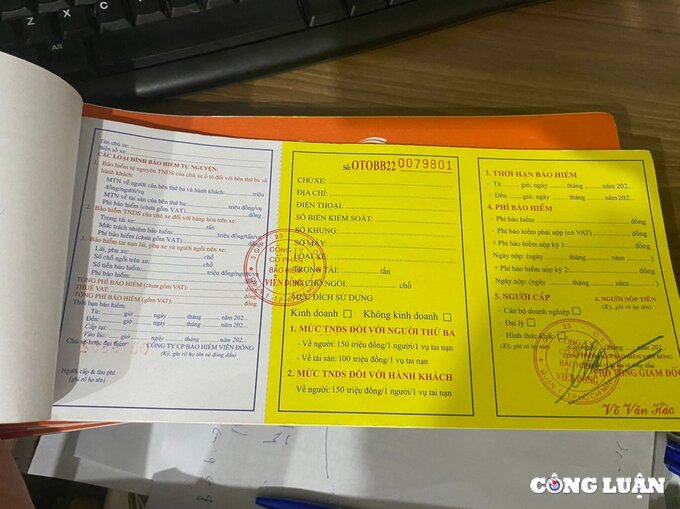 Tên chủ xe:
Biển số xe:
CÁC LOẠI HÌNH BẢO HIỂM TỰ NGUYỆN:
1. Bảo hiểm tự nguyện TNDS của chủ xe ô tô đối với bên thứ ba và
hành khách:
MTN về người của bên thứ ba và hành khách: triệu
đồng/người/vụ
MTN về tài sản của bên thứ ba: triệu đồng/vụ
Phí bảo hiểm (chưa gồm VAT): đồng
2. Bảo hiểm TNDS của chủ xe đối với hàng hóa trên xe:
Trọng tải xe: tấn
Mức trách nhiệm bảo hiểm: triệu đồng/tấn/vụ
Phí bảo hiểm (chưa gồm VAT): đồng
3. Bảo hiểm tai nạn lái, phụ xe và người ngồi trên xe:
Lái, phụ xe: chỗ
Số chỗ ngồi trên xe: chỗ
Số tiền bảo hiểm: triệu đồng/người/vụ
Phí bảo hiểm: đồng
TỔNG PHÍ BẢO HIỂM (chưa gồm VAT): đồng
THUẾ VAT: đồng
TỔNG PHÍ BẢO HIỂM (gồm VAT): đồng
Thời hạn bảo hiểm:
Từ: giờ, ngày tháng năm 202...
Đến: giờ, ngày tháng năm 202...
Cấp tại:
Vào lúc: giờ, ngày tháng năm 202...
Chủ xe hoặc đại diện CÔNG TY CP BẢO HIỂM VIỄN ĐÔNG
(Ký, ghi rõ họ tên và đóng dấu)
Người cấp & thu phí
(Ký, ghi rõ họ tên)
Số: OTOBB22 0079801
CHỦ XE:
ĐỊA CHỈ:
ĐIỆN THOẠI:
SỐ BIỂN KIỂM SOÁT:
SỐ KHUNG:
SỐ MÁY:
LOẠI XE:
TRỌNG TẢI: tấn
SỐ CHỖ NGỒI: chỗ
MỤC ĐÍCH SỬ DỤNG
Kinh doanh Không kinh doanh
1. MỨC TNDS ĐỐI VỚI NGƯỜI THỨ BA
- Về người: 150 triệu đồng/1 người/1 vụ tai nạn
- Về tài sản: 100 triệu đồng/1 vụ tai nạn
2. MỨC TNDS ĐỐI VỚI HÀNH KHÁCH
- Về người: 150 triệu đồng/1 người/1 vụ tai nạn
CÔNG TY
CỔ PHẦN
BẢO HIỂM
VIỄN ĐÔNG
3. THỜI HẠN BẢO HIỂM
- Từ: giờ, ngày tháng năm 202...
- Đến: giờ, ngày tháng năm 202...
4. PHÍ BẢO HIỂM
- Phí bảo hiểm đồng
- Phí bảo hiểm phải nộp (có VAT) đồng
- Phí bảo hiểm nộp kỳ 1: đồng
Ngày nộp: tháng năm
- Phí bảo hiểm nộp kỳ 2: đồng
Ngày nộp: tháng năm
5. NGƯỜI CẤP 6. NGƯỜI NỘP TIỀN
- Cán bộ doanh nghiệp (Ký, ghi rõ họ tên)
- Đại lý
- Hình thức khác
(Ký, ghi rõ họ tên)
PHÓ TỔNG GIÁM ĐỐC
VIỄN ĐÔNG
Võ Văn Hào
CÔNG LUẬN
CÔNG LUẬN